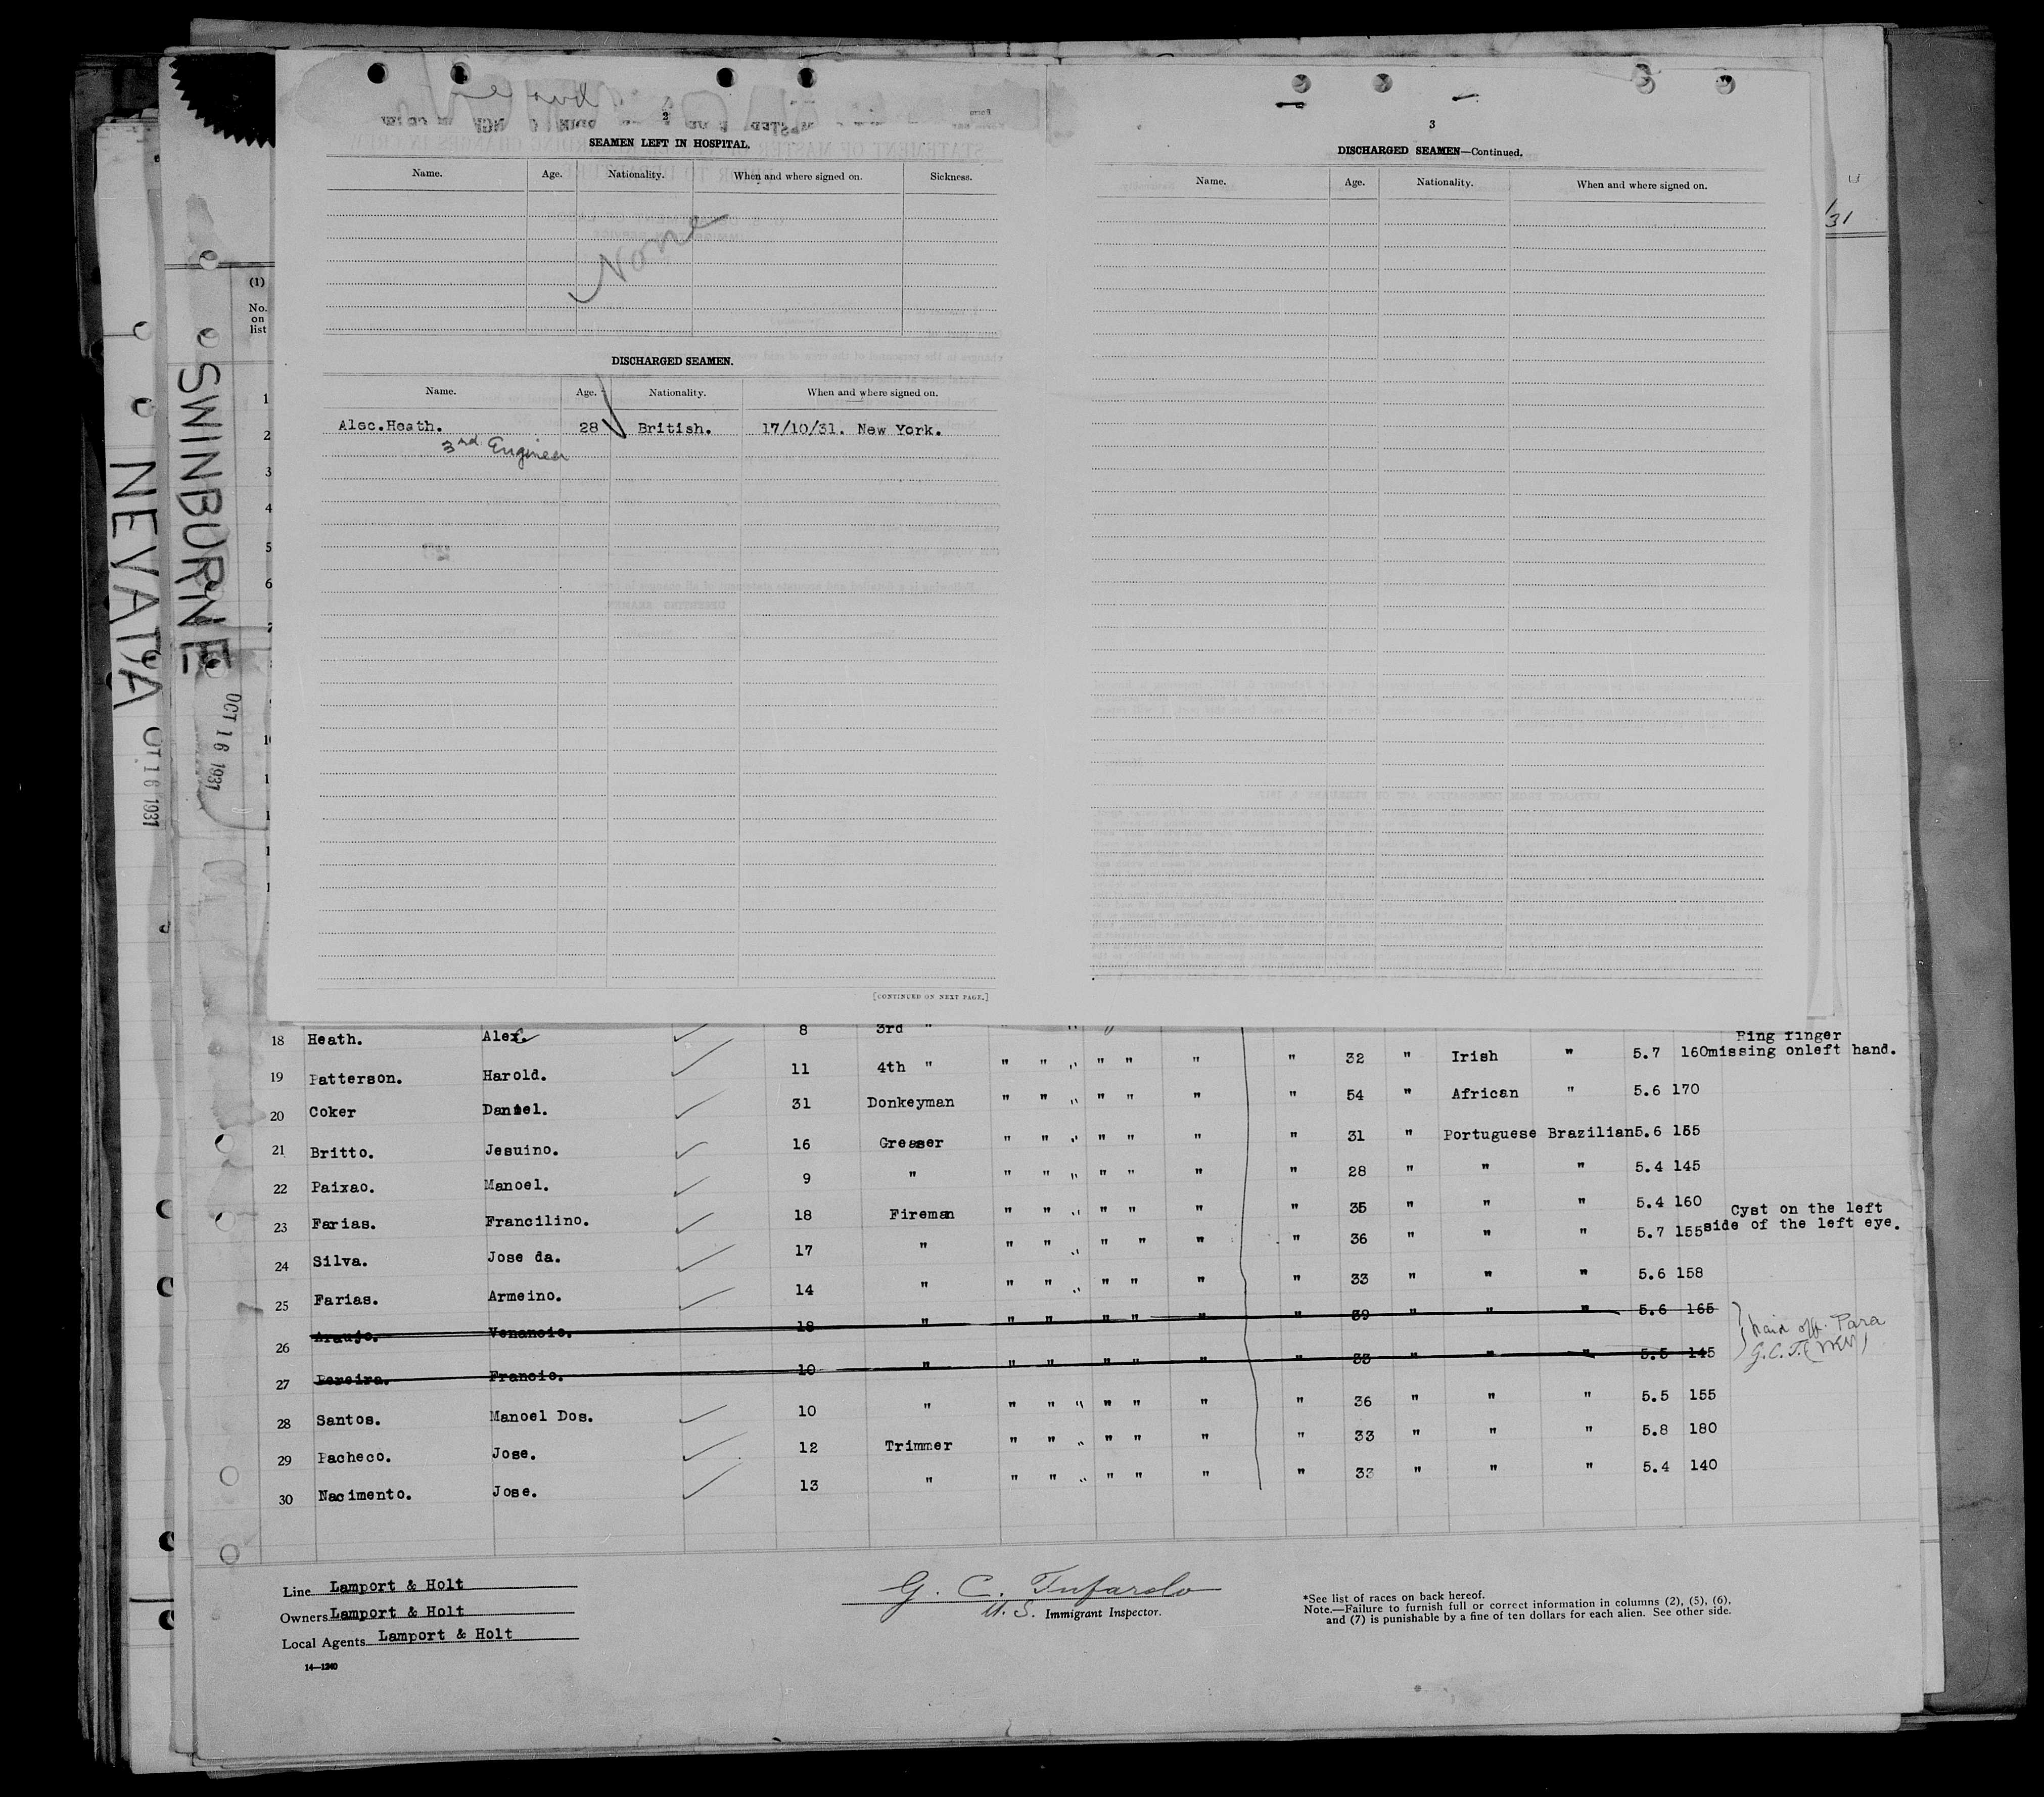 NEVADA OCT 16 1931
SWINBURNE OCT 16 1931
(1)
No.
on
list
1
2
3
4
5
6
7
2
SEAMEN LEFT IN HOSPITAL.
Name. Age. Nationality. When and where signed on. Sickness.
None
DISCHARGED SEAMEN.
Name. Age. Nationality. When and where signed on.
Alec.Heath. 28 British. 17/10/31. New York.
3rd Engineer
[CONTINUED ON NEXT PAGE.]
3
DISCHARGED SEAMEN—Continued.
Name. Age. Nationality. When and where signed on.
31
18 Heath. Alec. 8 3rd "
19 Patterson. Harold. 11 4th " " " " " " " " 32 " Irish " 5.7 160 Ring finger
missing onleft hand.
20 Coker Daniel. 31 Donkeyman " " " " " " " 54 " African " 5.6 170
21 Britto. Jesuino. 16 Greaser " " " " " " " 31 " Portuguese Brazilian 5.6 155
22 Paixao. Manoel. 9 " " " " " " " " 28 " " " 5.4 145
23 Farias. Francilino. 18 Fireman " " " " " " " 35 " " " 5.4 160
24 Silva. Jose da. 17 " " " " " " " " 36 " " " 5.7 155 Cyst on the left
side of the left eye.
25 Farias. Armeino. 14 " " " " " " " " 33 " " " 5.6 158
26 Araujo. Venancio. 18 " " " " " " " 39 " " " 5.6 165
27 Pereira. Francio. 10 " " " " " " " 33 " " " 5.5 145
off. Para
G.C.T.
28 Santos. Manoel Dos. 10 " " " " " " " " 36 " " " 5.5 155
29 Pacheco. Jose. 12 Trimmer " " " " " " " 33 " " " 5.8 180
30 Nacimento. Jose. 13 " " " " " " " " 33 " " " 5.4 140
Line Lamport & Holt
Owners Lamport & Holt
Local Agents Lamport & Holt
14—1240
G. C. Tufarolo
U. S. Immigrant Inspector.
*See list of races on back hereof.
Note.—Failure to furnish full or correct information in columns (2), (5), (6),
and (7) is punishable by a fine of ten dollars for each alien. See other side.